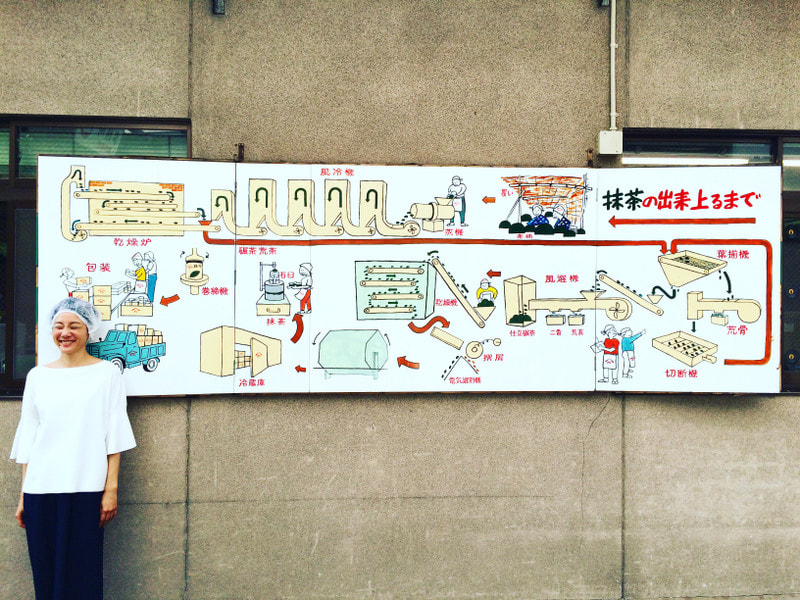 抹茶の出来上るまで
覆い
蒸機
風冷機
乾燥炉
碾茶荒茶
葉揃機
荒骨
切断機
風選機
仕立碾茶
二骨
乾燥機
撰房
電気選別機
冷蔵庫
石臼
抹茶
巻締機
包装